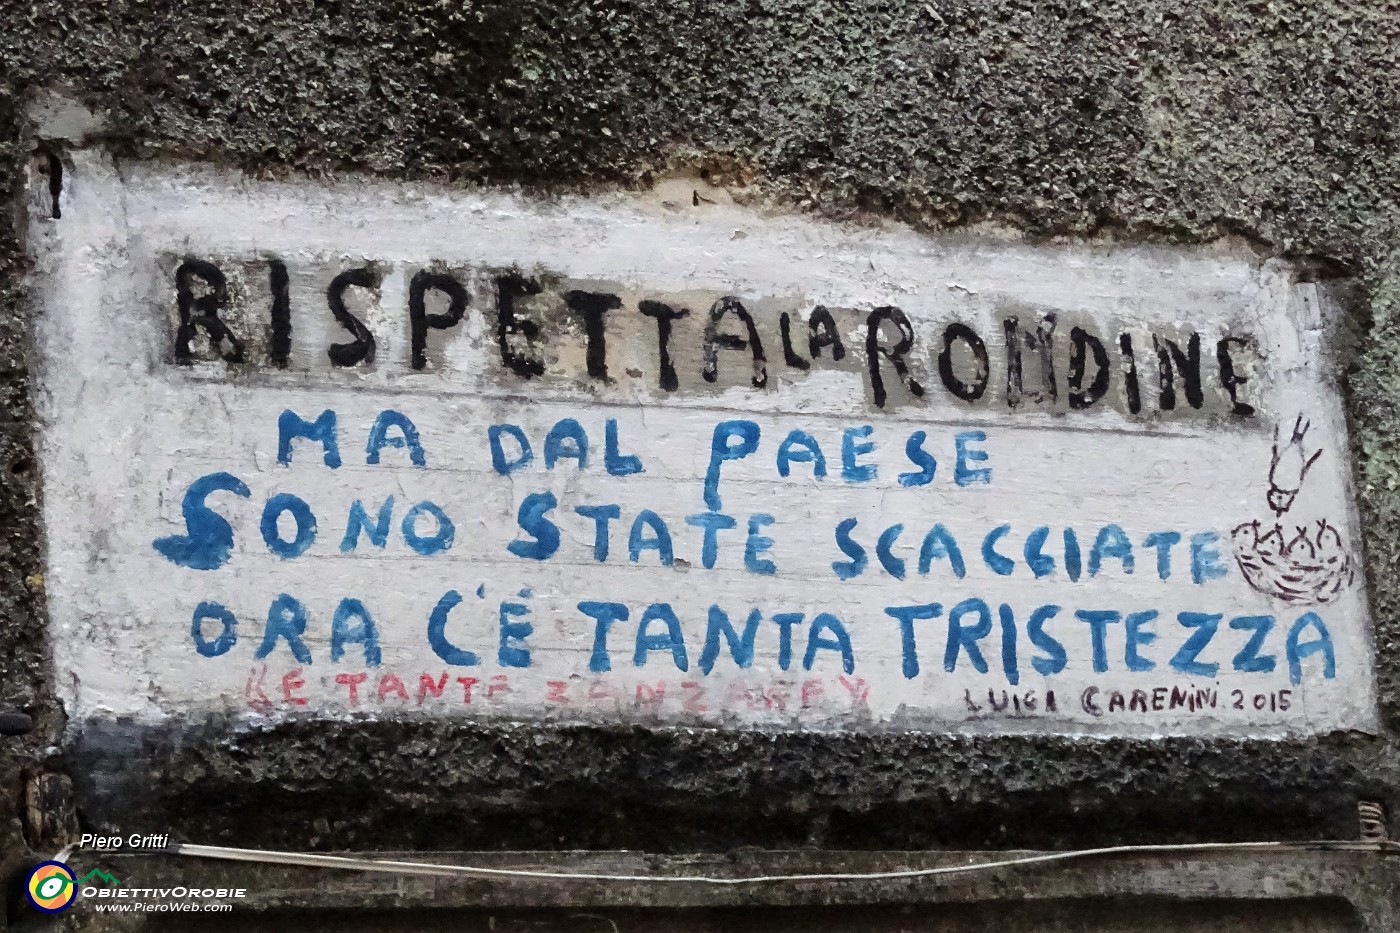 RISPETTA LA RONDINE
MA DAL PAESE
SONO STATE SCACCIATE
ORA C'È TANTA TRISTEZZA
E TANTE
LUIGI CARENINI 2015
Piero Gritti
OBIETTIVOROBIE
www.PieroWeb.com